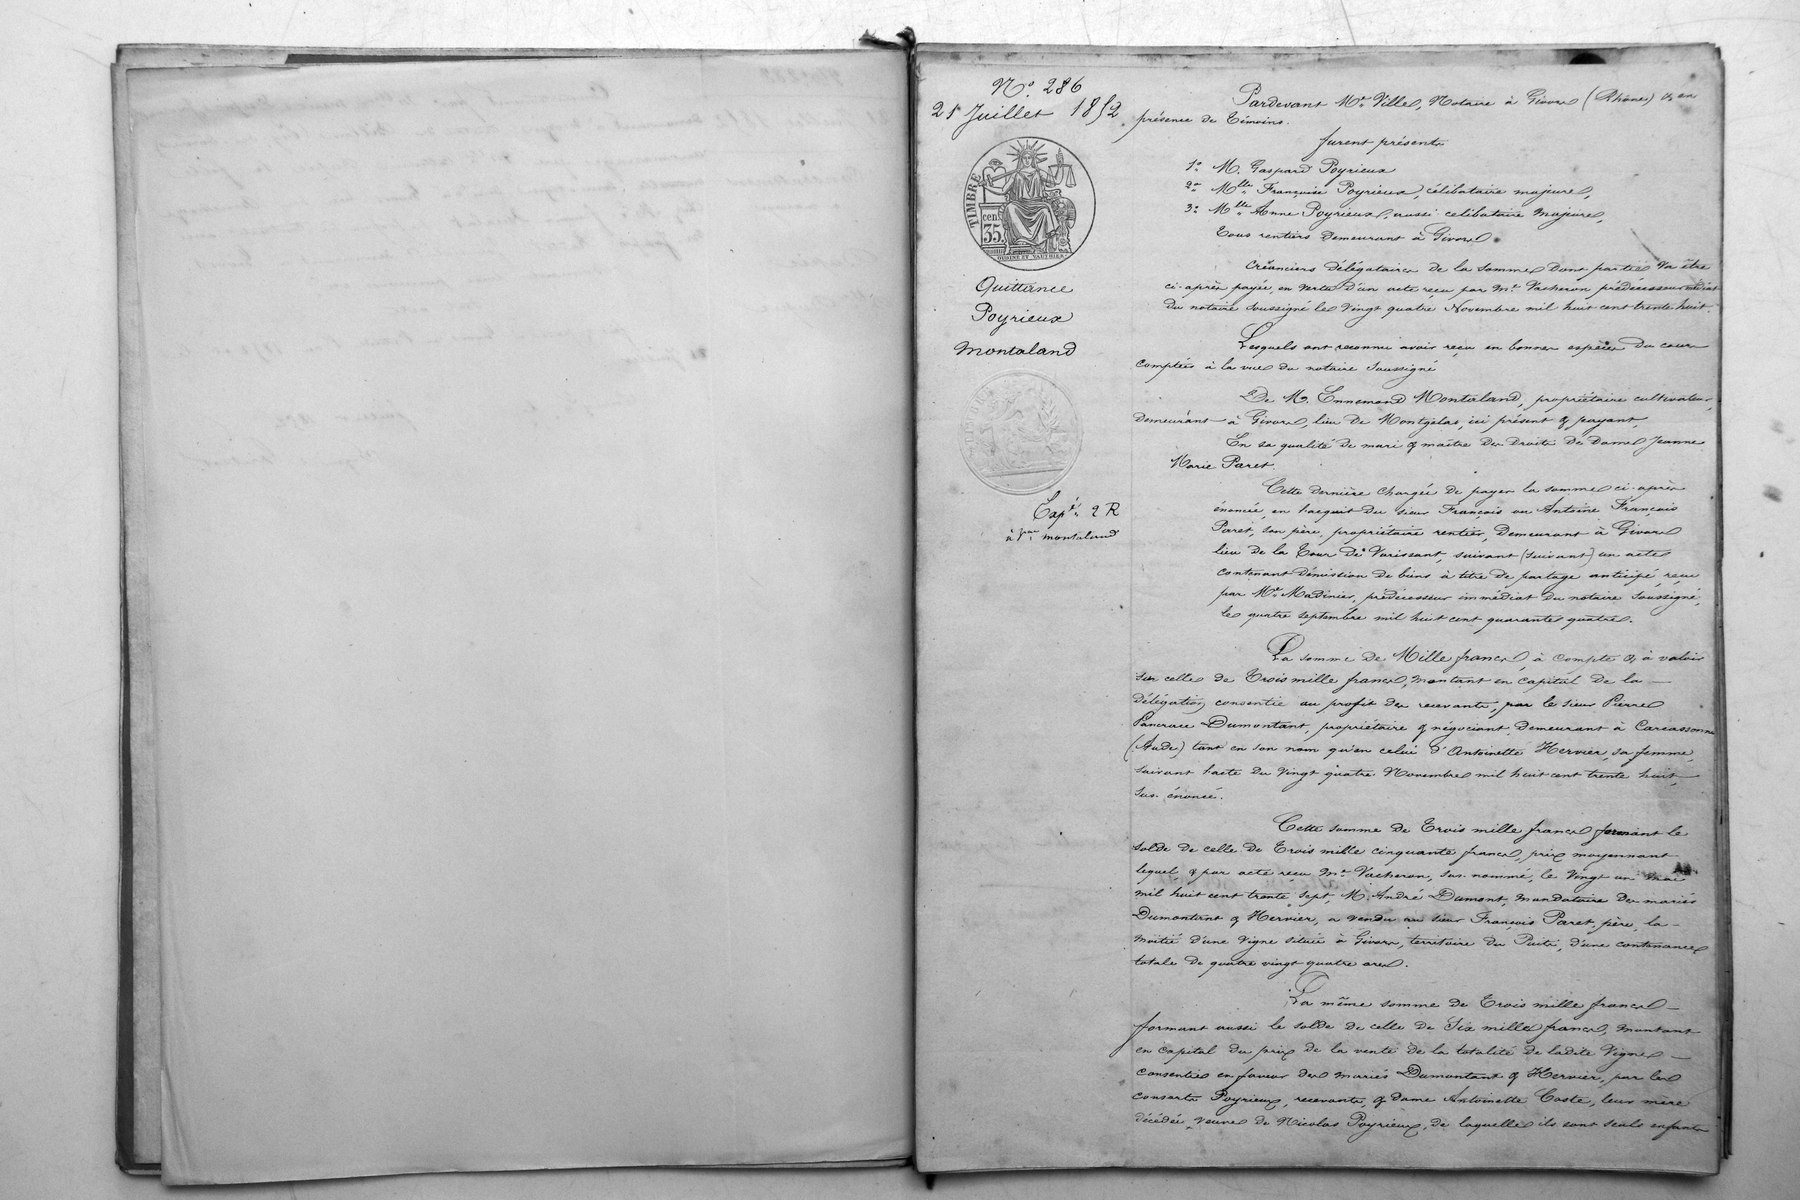 N.° 286
21 Juillet 1852
TIMBRE
cen.
35
OUDINÉ ET VAUTHIER
Quittance
Poyrieux
Montaland
Expé. 2 R
à Montaland
Pardevant Me. Ville, Notaire à Givors (Rhône) & en
présence de Témoins.
furent présents
1° M. Gaspard Poyrieux
2° Mlle. Françoise Poyrieux, célibataire majeure,
3° Mlle. Anne Poyrieux, aussi célibataire majeure,
Tous rentiers demeurant à Givors.
Créanciers délégataires de la somme dont partie va être
ci-après payée, en vertu d'un acte reçu par Me. Vacheron prédécesseur médiat
du notaire soussigné le vingt quatre Novembre mil huit cent trente huit.
Lesquels ont reconnu avoir reçu en bonnes espèces du cours
comptées à la vue du notaire soussigné
De M. Ennemond Montaland, propriétaire cultivateur,
demeurant à Givors, lieu de Montgelas, ici présent & payant,
En sa qualité de mari & maître des droits de Dame Jeanne
Marie Paret.
Cette dernière chargée de payer la somme ci-après
énoncée, en l'acquit du sieur François ou Antoine François
Paret, son père, propriétaire rentier, demeurant à Givors
lieu de la Tour de Varissant, suivant (suivant) un acte
contenant démission de biens à titre de partage anticipé, reçu
par Me. Madinier, prédécesseur immédiat du notaire soussigné,
le quatre septembre mil huit cent quarante quatre.
La somme de Mille francs, à compte & à valoir
sur celle de Trois mille francs, montant en capital de la
délégation consentie au profit des recevants, par le sieur Pierre
Pancrace Dumontant, propriétaire & négociant, demeurant à Carcassonne
(Aude) tant en son nom qu'en celui d'Antoinette Hervier, sa femme,
suivant l'acte du vingt quatre Novembre mil huit cent trente huit,
sus-énoncé.
Cette somme de Trois mille francs formant le
solde de celle de Trois mille cinquante francs, prix moyennant
lequel, & par acte reçu Me. Vacheron, sus-nommé, le vingt un mai
mil huit cent trente sept, M. André Dumont, mandataire des mariés
Dumontant & Hervier, a vendu au sieur François Paret, père, la
moitié d'une vigne située à Givors, territoire du Puits, d'une contenance
totale de quatre vingt quatre ares.
La même somme de Trois mille francs
formant aussi le solde de celle de Six mille francs, montant
en capital du prix de la vente de la totalité de ladite vigne
consentie en faveur des mariés Dumontant & Hervier, par les
consorts Poyrieux, recevants, & dame Antoinette Coste, leur mère
décédée, veuve de Nicolas Poyrieux, de laquelle ils sont seuls enfants